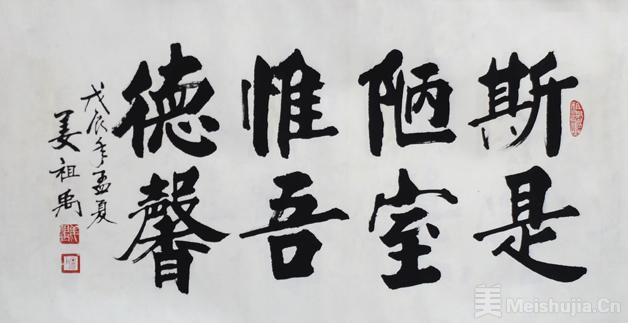 斯是
陋室
惟吾
德馨
戊辰年孟夏
姜祖禹
美 Meishujia.Cn